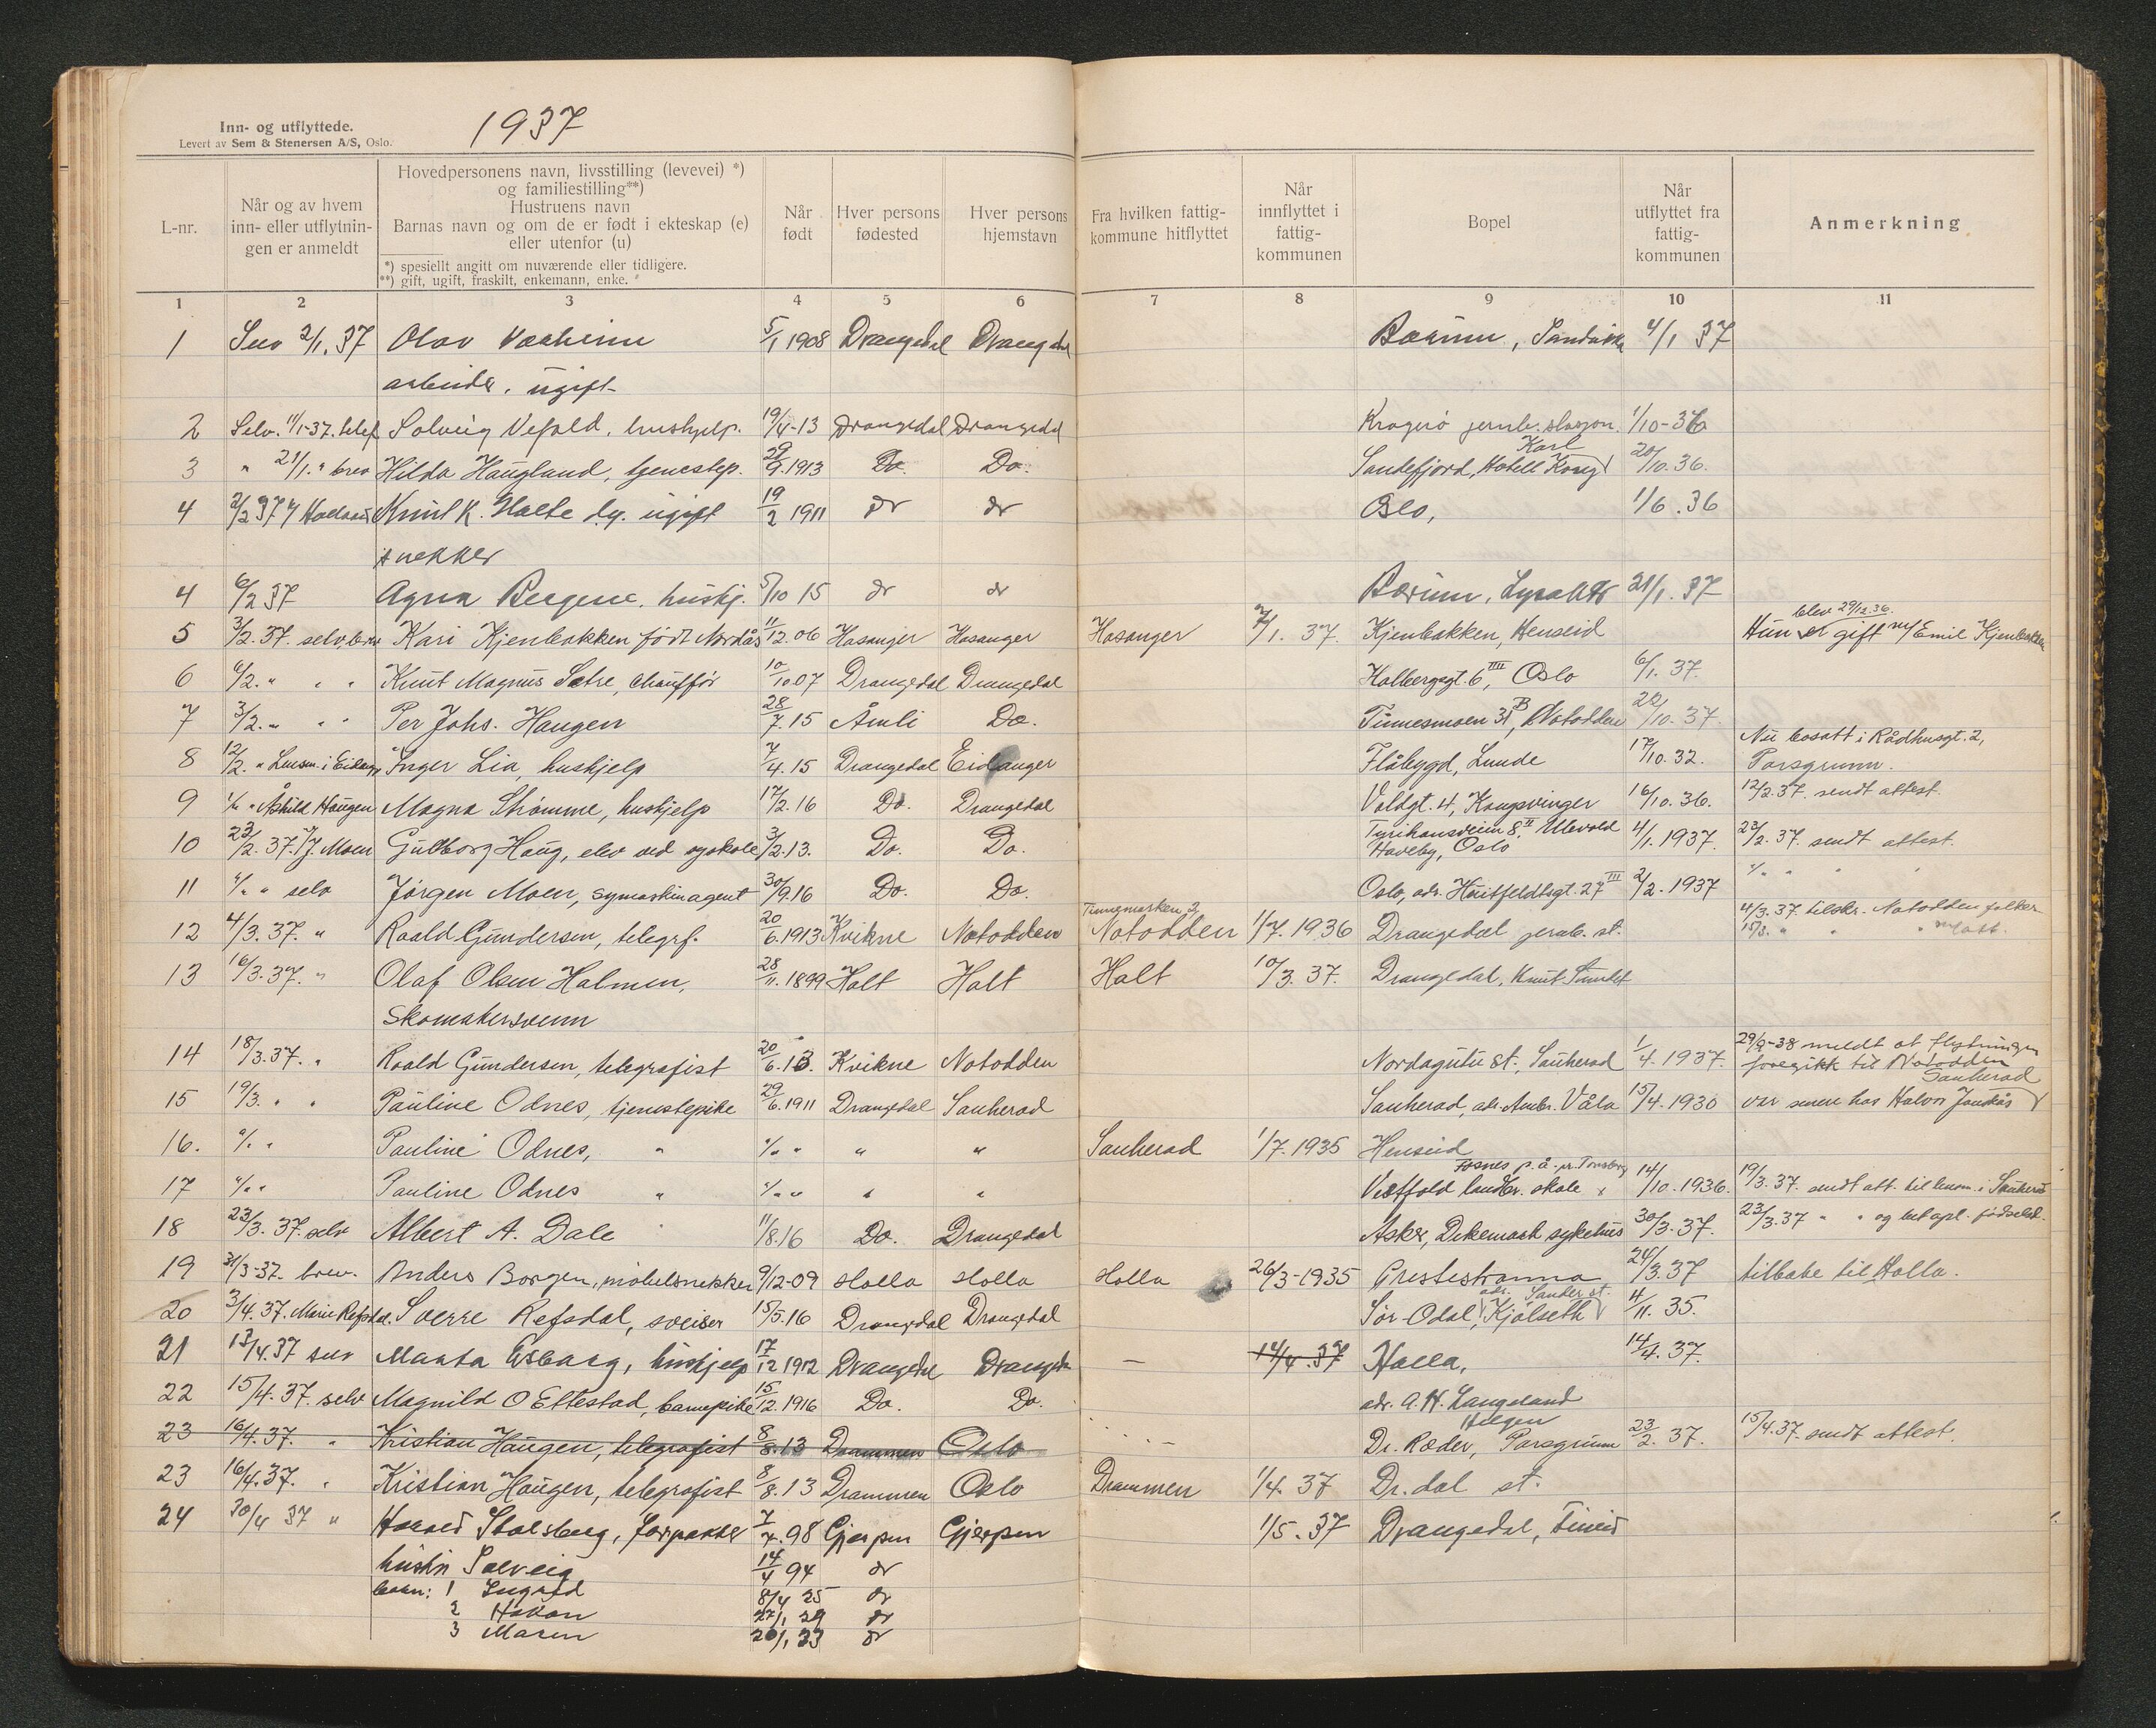 Inn- og utflyttede.
Levert av Sem & Stenersen A/S, Oslo.
1937
L-nr.
Når og av hvem inn- eller utflytnin-gen er anmeldt
Hovedpersonens navn, livsstilling (levevei) *)
og familiestilling**)
Hustruens navn
Barnas navn og om de er født i ekteskap (e)
eller utenfor (u)
*) spesiellt angitt om nuværende eller tidligere.
**) gift, ugift, fraskilt, enkemann, enke.
Når født
Hver persons fødested
Hver persons hjemstavn
Fra hvilken fattig-kommune hitflyttet
Når innflyttet i fattig-kommunen
Bopel
Når utflyttet fra fattig-kommunen
Anmerkning
1 2 3 4 5 6 7 8 9 10 11
1 2/1.37 Olav 5/1 1908 Drangedal Drangedal Bærum, Sandvika 4/1 37
arbeider. ugift
2 Selv. 11/1-37. telef. Solveig Vefald, hushjelp. 19/4-13 Drangedal Drangedal Kragerø jernb. stasjon. 1/10-36
3 " 21/1. " brev Hilda Haugland, tjenestep. 29/9.1913 Do. Do. Sandefjord, Hotell Kong Karl 20/10.36.
4 2/2 37 Knut K. Halte ugift 19/2 1911 do do Oslo, 1/6.36
snekker
4 6/2 37 Agna hushj. 5/10 15 do do Bærum, Lysaker 21/1.37
5 3/2.37. selv, brev Kari Kjenbakken født Nordås 11/12.06 Hosanger Hosanger Hosanger 2/1.37. Kjenbakken, Henseid Hun er blev 29/12.36. gift m/ Emil Kjenbakken
6 6/2. " " " Knut Magnus Sætre, chauffør 10/10.07 Drangedal Drangedal Holbergsgt. 6 IIII, Oslo 6/1.37.
7 3/2. " " " Per Johs. Haugen 28/7.15 Åmli Do. Tinnesmoen 31 B, Notodden 22/10.37.
8 12/2. " Lensm. i Eidanger Inger Lia, hushjelp 7/4.15 Drangedal Eidanger Flåbygd, Lunde 17/10.32. Nu bosatt i Rådhusgt. 2, Porsgrunn.
9 "/" " Åshild Haugen Magna Strømme, hushjelp 17/2.16 Do. Drangedal Voldgt. 4, Kongsvinger 16/10.36. 12/2.37. sendt attest.
10 23/2.37. J. Moen Gulborg Haug, elev ved syskole 3/2.13. Do. Do. Tyrihansveien 8 II, Ullevold Haveby, Oslo 4/1.1937. 23/2.37. sendt attest.
11 "/" " selv Jørgen Moen, symaskinagent 30/9.16 Do. Do. Oslo, adr. Huitfeldtsgt. 27 III 2/2.1937 "/" " "
12 4/3.37. " Roald Gundersen, telegrf. 20/6.1913 Kvikne Notodden Tinnemarken 2 Notodden 1/7.1936 Drangedal jernb. st. 4/3.37. tilskr. Notodden folker.
13 16/3.37. " Olaf Olsen Holmen, 28/11.1899 Holt Holt Holt 10/3.37. Drangedal, Knut
Skomakersvenn
14 18/3.37. " Roald Gundersen, telegrafist 20/6.13. Kvikne Notodden Nordagutu st., Sauherad 1/4.1937. 29/9-38 meldt at flytningen foregikk til Notodden
15 19/3. " " Pauline Odnes, tjenestepike 29/6.1911 Drangedal Sauherad Sauherad, adr. Ambr. Våla 15/4.1930 var senere hos Halvor Sauherad
16. "/" " Pauline Odnes, " "/" " " " Sauherad 1/7.1935 Henseid
17 "/" " Pauline Odnes " "/" " " " Vestfold landbr. skole p.å. pr. Tønsberg 14/10.1936. 19/3.37. sendt att. til lensm. i Sauherad
18 23/3.37. selv Albert A. Dale 11/8.16 Do. Drangedal Asker, Dikemark sykehus 30/3.37. 23/3.37 " " og
19 31/3-37. brev. Anders Borgen, møbelsnekker 9/12-09 Holla Holla Holla 26/3-1935 Prestestranna 24/3.37 tilbake til Holla.
20 3/4.37. Marie Refsdal. Sverre Refsdal, sveiser 15/5.16 Drangedal Drangedal Sør-Odal, Kjølseth adr. Sander st. 4/11.35.
21 13/4.37 Marta hushjelp 17/12 1912 Drangedal Drangedal — 14/4.37 Holla, 14/4.37.
22 15/4.37. selv Magnild O Ettestad, barnepike 15/12.1916 Do. Do. adr. A. H. Langeland Helgen
23 16/4.37. " Kristian Haugen, telegrafist 8/8.13 Drammen Oslo Dr. Ræder, Porsgrunn 23/2.37. 15/4.37. sendt attest.
23 16/4.37. " Kristian Haugen, telegrafist 8/8.13 Drammen Oslo Drammen 1/4.37 Dr.dal st.
24 30/4 37 " Harald Stolsberg, forpakter 7/7.98 Gjerpen Gjerpen 1/5.37 Drangedal,
hustr. Solveig 14/4 94 do
barn: 1 Ingrid 8/4 25 do
2 Håkon 27/1 29 do
3 Maren 20/1 33 do